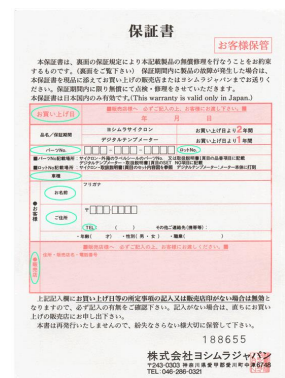 保証書
お客様保管
本保証書は、裏面の保証規定により本記載製品の無償修理を行なうことをお約束
するものです。(裏面をご覧下さい) 保証期間内に製品の故障が発生した場合は、
本保証書を現品に添えてお買い上げの販売店またはヨシムラジャパンまでお送りく
ださい。保証期間内に限り無償にて点検・修理をさせていただきます。
本保証書は日本国内のみ有効です。(This warranty is valid only in Japan.)
お買い上げ日
※販売店様へ 必ずご記入の上、お客様にお渡し下さい。※
年 月 日
品名/保証期間
ヨシムラサイクロン
お買い上げ日より2年間
デジタルテンプメーター
お買い上げ日より1年間
パーツNo.
ロットNo.
■パーツNo記載場所
■ロットNo記載場所
車種
フリガナ
お名前
お客様
〒
ご住所
TEL ( ) その他ご連絡先(携帯等)
・年齢( )才 ・性別(男・女) ・職業( )
※販売店様へ 必ずご記入の上、お客様にお渡しください。※
販売店
住所・販売店名・電話番号
上記記入欄にお買い上げ日等の所定事項の記入又は販売店印がない場合は無効と
なりますので、必ず記入の有無をご確認下さい。記入がない場合は、直ちにお買い
上げの販売店にお申し出下さい。
本書は再発行いたしませんので、紛失なさらない様大切に保管して下さい。
188655
株式会社ヨシムラジャパン
〒243-0303 神奈川県愛甲郡愛川町中津6748
TEL:046-286-0321